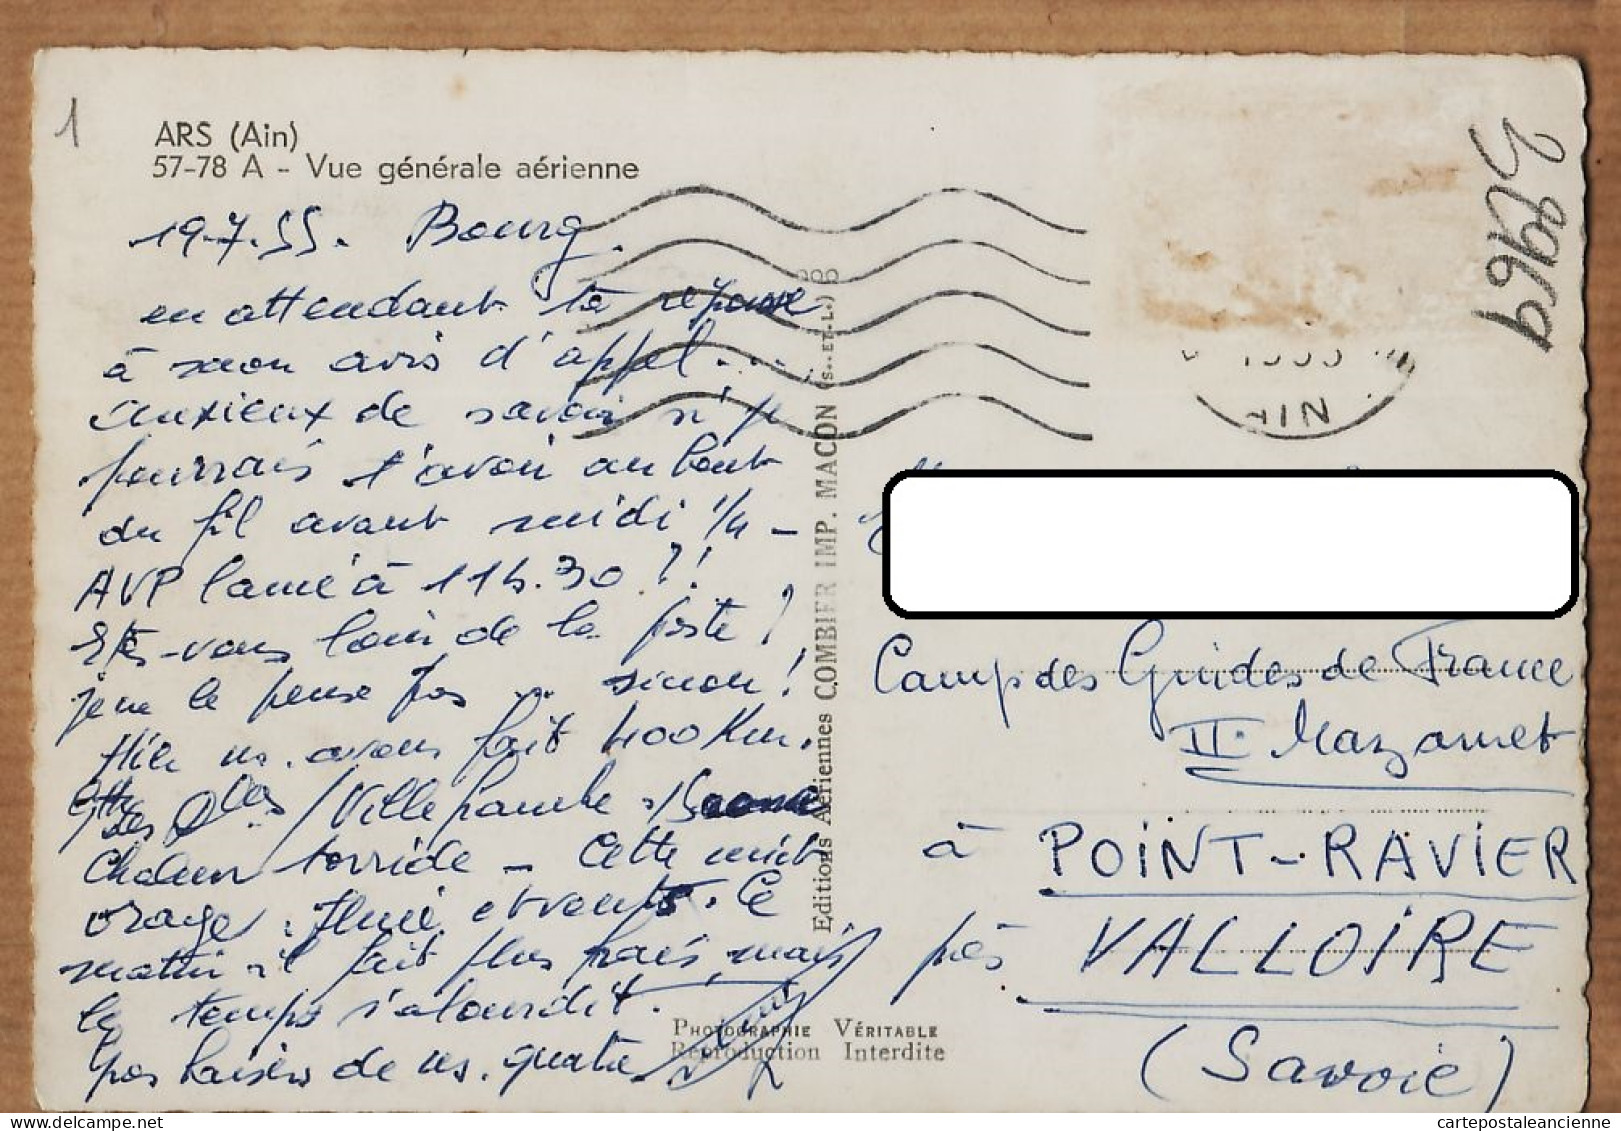 1
ARS (Ain)
57-78 A - Vue générale aérienne
25969
19-7-55. Bourg.
en attendant ta réponse
à mon avis d'appel....
anxieux de savoir si je
pourrais t'avoir au bout
du fil avant midi 1/4 -
AVP lancé à 11h.30 ?!
Etes-vous loin de la poste ?
je ne le pense pas ... sinon !
Hier ns. avons fait 400 Km.
des / Villefranche
Chaleur torride - Cette nuit
orage, pluie et vents. Ce
matin il fait plus frais mais
le temps s'alourdit.
Gos baisers de ns. quatre
Editions Aériennes COMBIER IMP. MACON (S.-ET-L.)
1955
AIN
Camp des Guides de France
II. Mazamet
à POINT-RAVIER
près VALLOIRE
(Savoie)
PHOTOGRAPHIE VÉRITABLE
Reproduction Interdite
cartepostaleancienne